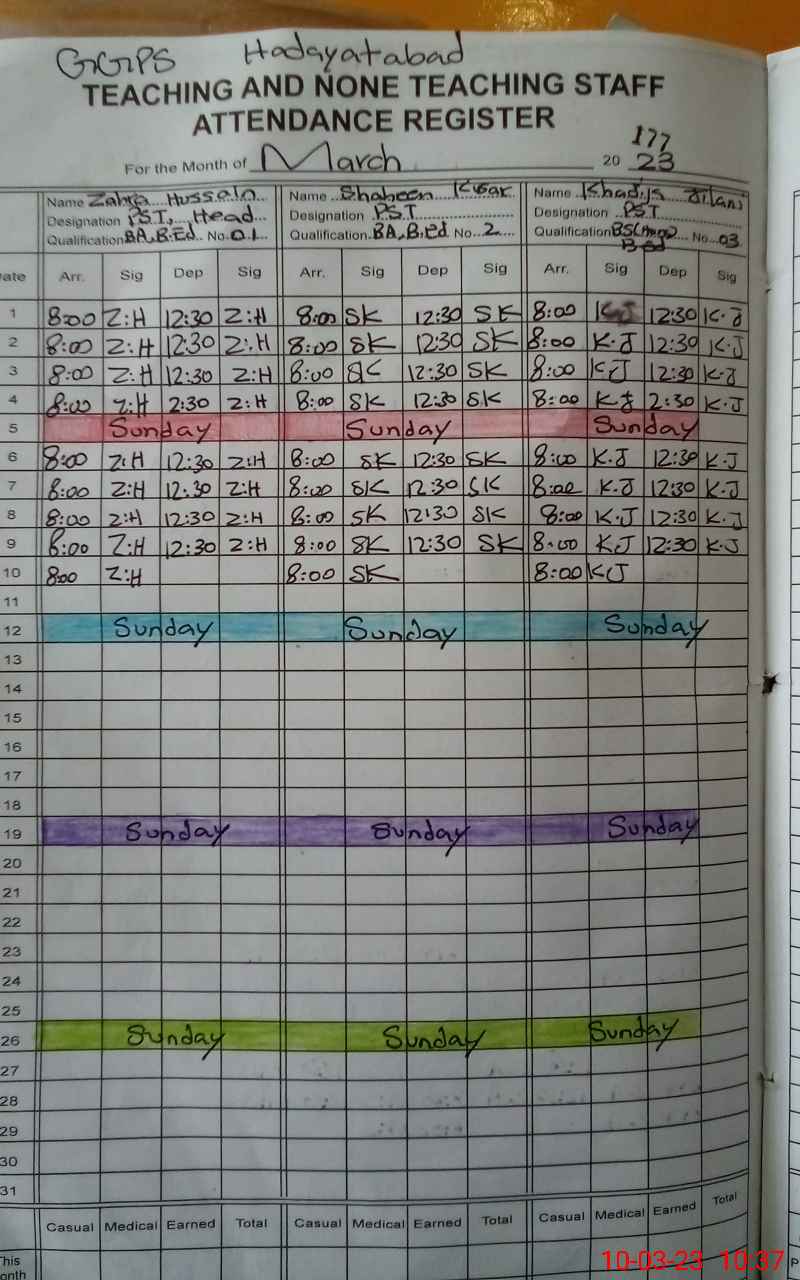 GGPS Hodayatabad
TEACHING AND NONE TEACHING STAFF
ATTENDANCE REGISTER
177
For the Month of March 20 23
Name Zahra Hussain Name Shaheen Kusar Name Khadija Jilani
Designation PST, Head Designation PST Designation PST
Qualification BA, B.Ed No. 01 Qualification. BA, B.Ed No 2 Qualification No 03
B.Ed
ate Arr. Sig Dep Sig Arr. Sig Dep Sig Arr. Sig Dep Sig
1 8:00 Z:H 12:30 Z:H 8:00 SK 12:30 SK 8:00 K.J 12:30 K.J
2 8:00 Z:H 12:30 Z:H 8:00 SK 12:30 SK 8:00 K.J 12:30 K.J
3 8:00 Z:H 12:30 Z:H 8:00 SK 12:30 SK 8:00 KJ 12:30 K.J
4 8:00 Z:H 2:30 Z:H 8:00 SK 12:30 SK 8:00 KJ 2:30 K.J
5 Sunday Sunday Sunday
6 8:00 Z:H 12:30 Z:H 8:00 SK 12:30 SK 8:00 K.J 12:30 K.J
7 8:00 Z:H 12:30 Z:H 8:00 SK 12:30 SK 8:00 K.J 12:30 K.J
8 8:00 Z:H 12:30 Z:H 8:00 SK 12:30 SK 8:00 K.J 12:30 K.J
9 8:00 Z:H 12:30 Z:H 8:00 SK 12:30 SK 8:00 K.J 12:30 K.J
10 8:00 Z:H 8:00 SK 8:00 KJ
11
12 Sunday Sunday Sunday
13
14
15
16
17
18
19 Sunday Sunday Sunday
20
21
22
23
24
25
26 Sunday Sunday Sunday
27
28
29
30
31
Casual Medical Earned Total Casual Medical Earned Total Casual Medical Earned Total
This
onth
10-03-23 10:37